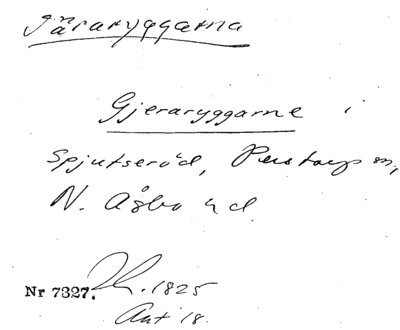 Järaryggarna
Gjeraryggarne i
Spjutseröd, Perstorps sn,
N. Åsbo hd
Nr 7327. 1825
Akt 18.